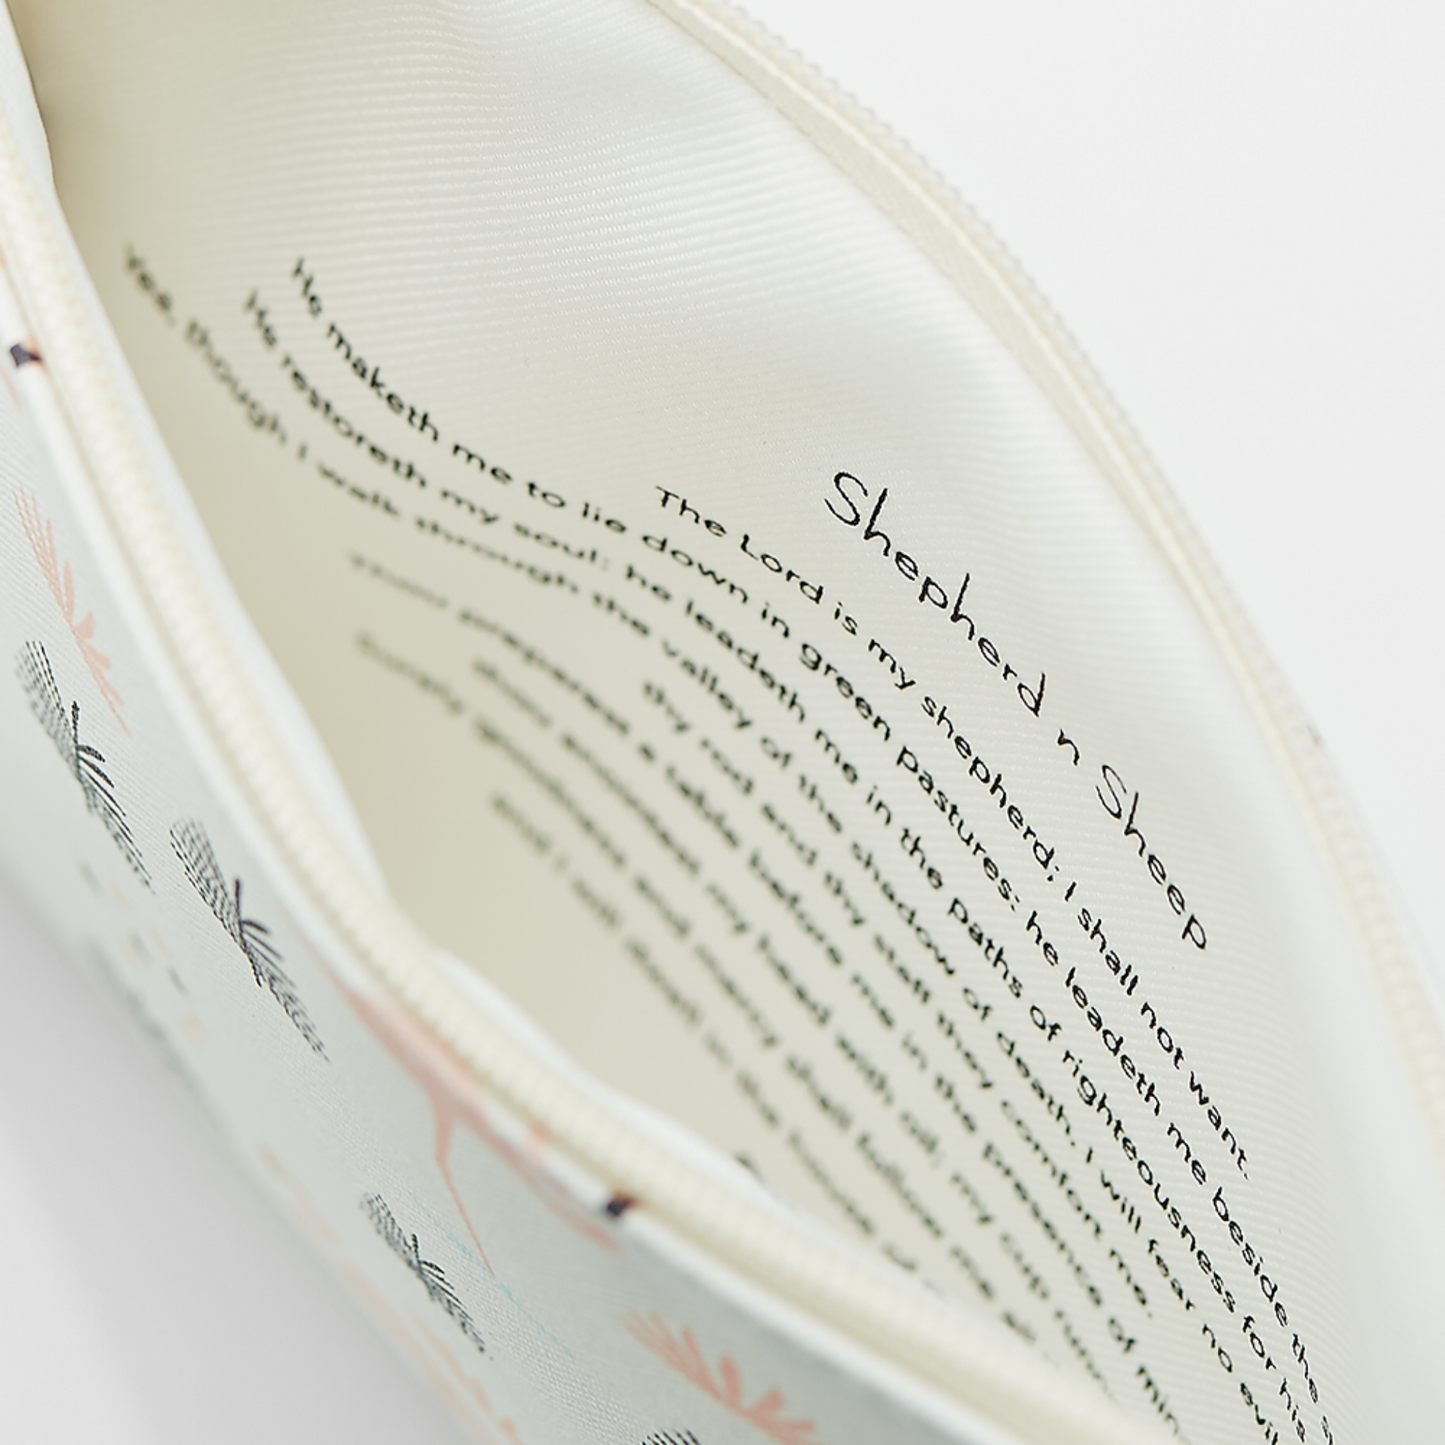 Shepherd n Sheep
The Lord is my shepherd; I shall not want.
He maketh me to lie down in green pastures: he leadeth me beside the
He restoreth my soul: he leadeth me in the paths of righteousness for his
Yea, though I walk through the valley of the shadow of death, I will fear no evil
thy rod and thy staff they comfort me.
preparest a table before me in the presence of min
thou anointest my head with oil; my cup runn
Surely goodness and mercy shall follow me
and I will dwell in the house of